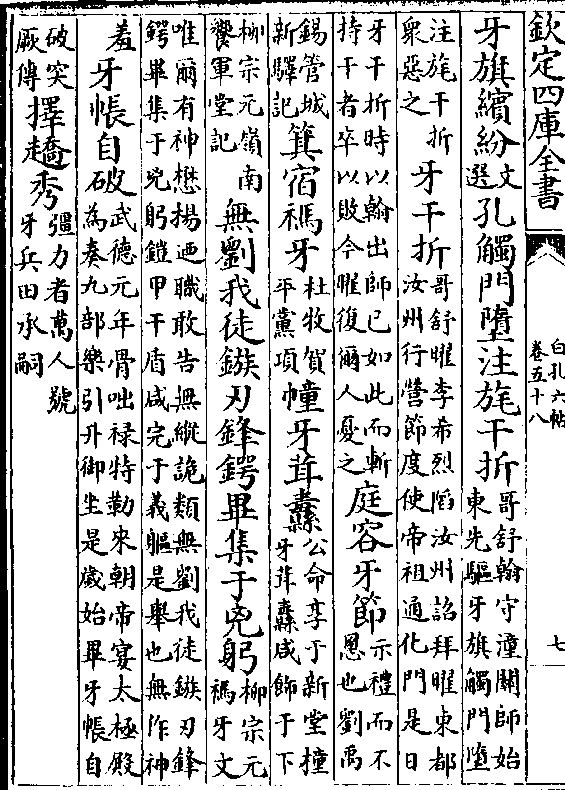 欽定四庫全書
白孔六帖
卷五十八
七
牙旗繽紛文選孔觸門墮注旄干折哥舒翰守潼關師始東先驅牙旗觸門墮
注旄干折衆惡之牙干折哥舒曜李希烈䧟汝州詔拜曜東都汝州行營節度使帝祖通化門是日
牙干折時以翰出師已如此而斬持干者卒以敗今曜復爾人憂之庭容牙節示禮而不恩也劉禹
錫管城新驛記箕宿禡牙杜牧賀平黨項幢牙茸纛公命享于新堂撞牙茸纛咸飾于下
栁宗元嶺南饗軍堂記無劉我徒鏃刃鋒鍔畢集于兇躬栁宗元禡牙文
唯爾有神懋揚迺職敢告無縱詭類無劉我徒鏃刃鋒鍔畢集于兇躬鎧甲干盾咸完于義軀是舉也無作神
羞牙帳自破武德元年骨咄禄特勒來朝帝宴太極殿為奏九部樂引升御坐是歲始畢牙帳自
破突厥傳擇趫秀彊力者萬人號牙兵田承嗣